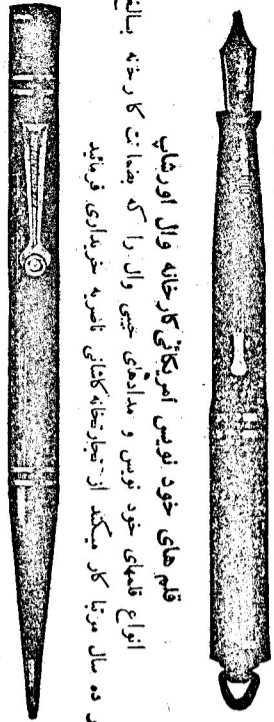 قلم های خود نویس امریکائی کارخانه وال اورشاپ
انواع قلمهای خود نویس و مدادهای جیبی وال را که بضمانت کارخانه بالغ
بر ده سال مرتبا کار میکند از تجارتخانه کاشانی ناصریه خریداری فرمائید